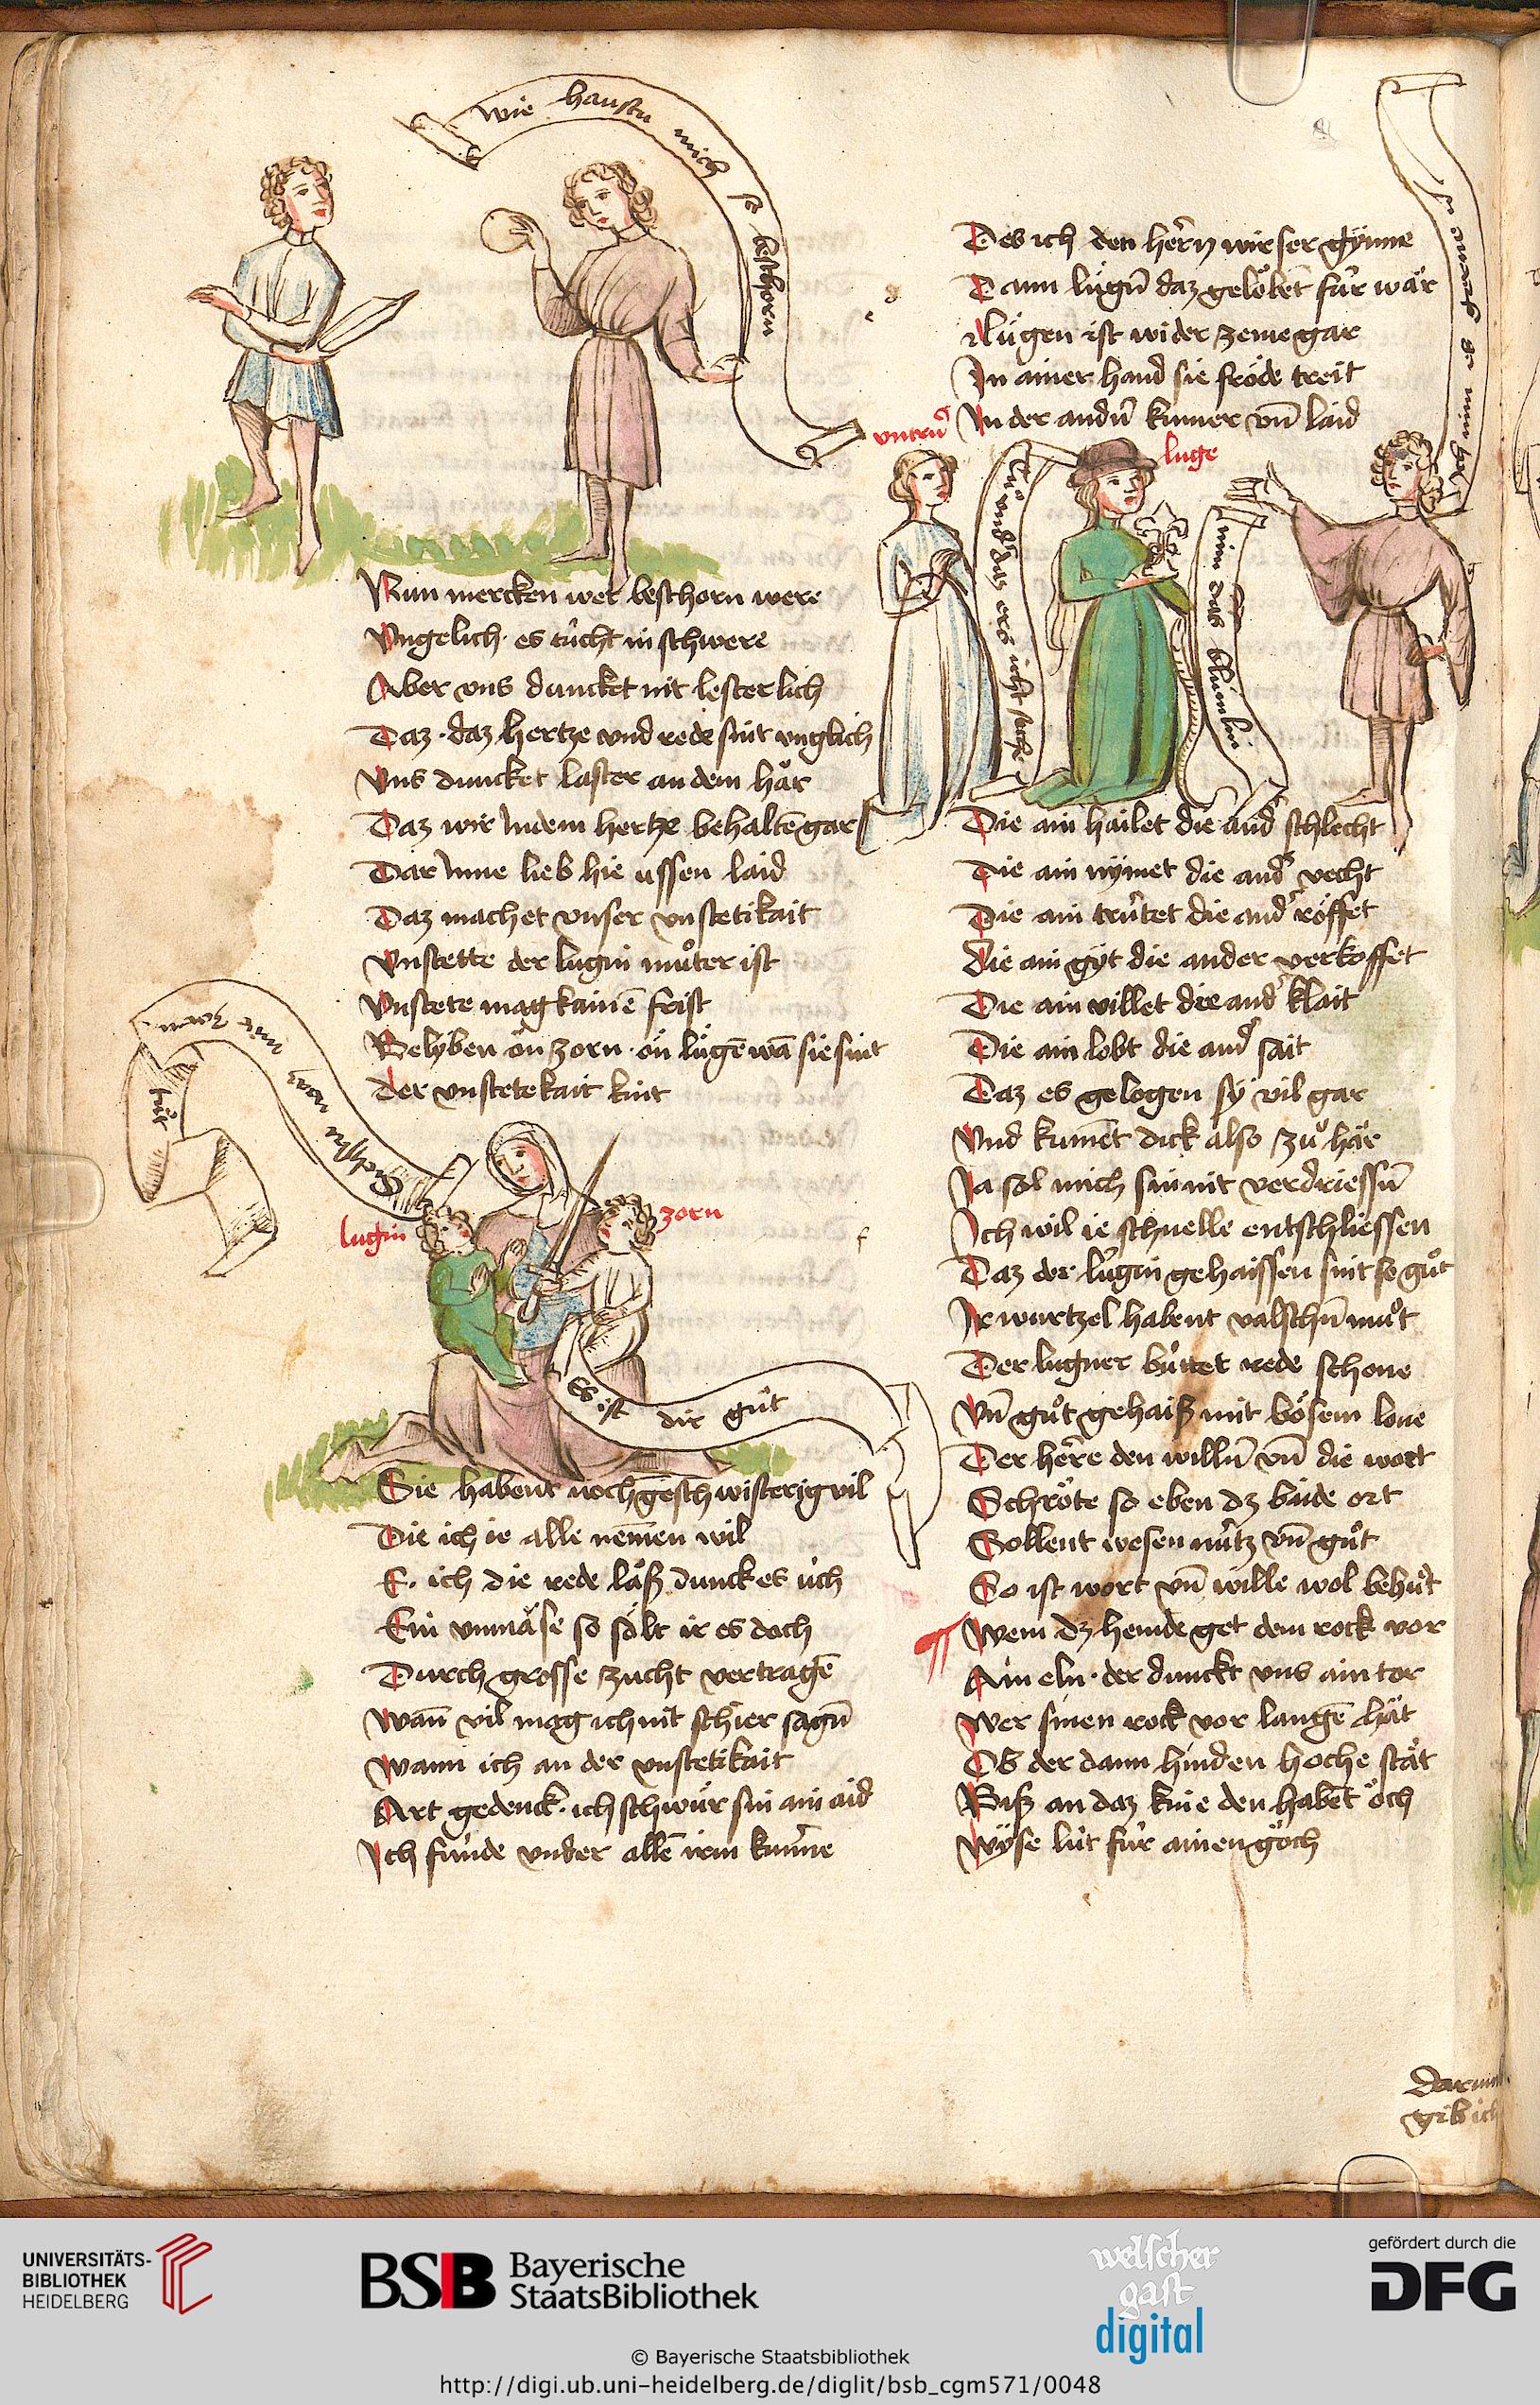 wie haustu mich so beschorn
Nun mercken wer beschorn were
Vngelich es tücht in schwere
Aber vns duncket nit lesterlich
Daz daz hertze vnd rede sint vnglich
Vns duncket laster an dem hår
Daz wir Indem hertze behaltē gar
Dar Inne lieb hie ussen laid
Daz machet vnser vnstetikait
Vnstette der lugin můter ist
Vnstete mag kainē frist
Belyben ön zorn ön lügē wā sie sint
der vnstetekait kint
mit zorn
tůt
lugin
zorn
Es ist dir gůt
Sie habent noch geschwisterig vil
Die ich ie alle nem̄en wil
E ich die rede låß dunck es üch
Ein vnmåse so sölt ir es doch
Durch grosse zucht vertragē
Wan̄ vil mag ich nit schier sagn̄
Wann ich an der vnstetikait
Art gedenck ich schwür sin ain aid
Ich funde vnder allē irm kun̄ne
Des ich den her̄n wirser gÿnne
Dann lugn̄ daz gelöbēt für wär
Lügen ist wider zeme gar
In ainer hand sie fröde treit
In der andn̄ kumer vn̄ laid
vntrü
luge
nim das blümlin
Die ain hailet die and' schlecht
Die ain nÿmet die and' vecht
Die ain trütet die and' röffet
Die ain gÿt die ander verkoffet
Die ain villet die and' klait
Die ain lobt die and' sait
Daz es gelogen sÿ vil gar
Vnd kumēt dick also zů här
Ja sol mich sin nit verdriessn̄
Ich wil ie schnelle entschliessen
Daz der lügin gehaissen sint so gůt
Ir wurtzel habent valschn̄ můt
Der lugner büttet rede schone
Vn̄ gůt gehaiß mit bösem lone
Der her̄re den willn̄ vn̄ die wort
Schröte so eben dz baide ort
Sollent wesen nütz vn̄ gůt
So ist wort vn̄ wille wol behůt
Wem dz hemde get dem rock vor
Ain eln der dunckt vns ain tor
Wer sinen rock vor langē hät
Ob der dann hinden hoche stät
Biß an daz knie den habēt öch
Wÿse lüt für ainen göch
Darumb
gib ich
UNIVERSITÄTS-
BIBLIOTHEK
HEIDELBERG
BSB Bayerische
StaatsBibliothek
welscher
gast
digital
gefördert durch die
DFG
© Bayerische Staatsbibliothek
http://digi.ub.uni-heidelberg.de/diglit/bsb_cgm571/0048